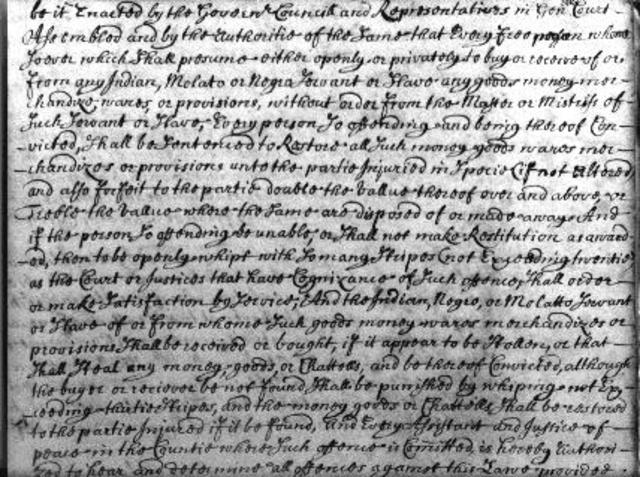 be it Enacted by the Governr Councill and Representatives in Genll Court
Assembled and by the Authoritie of the same that Every free person whom
soever which shall presume either openly or privately to buy or receive of or
from any Indian, Molato or Negra servant or slave any goods money mer-
chandize wares, or provisions, without order from the Master or Mistriss of
such servant or slave, Every person so offending and being thereof Con-
victed, shall be sentenced to Restore all such money goods wares mer-
chandizes or provisions unto the partie Injuried in specie (if not altered)
and also forfeit to the partie double the vallue thereof over and above, or
treble the vallue where the same are disposed of or made away. And
if the person so offending be unable, or shall not make Restitution as award-
ed, then to be openly whipt with so many stripes (not Exceeding twentie)
as the Court or Justices that have Cognizance of such offence, shall order
or make satisfaction by service; And the Indian, Negro, or Molatto servant
or slave of or from whome such goods money wares merchandizes or
provisions shall be received or bought, if it appear to be stollen, or that
shall steal any money, goods, or Chattells, and be thereof Convicted, although
the buyer or reciever be not found, shall be punished by whiping not Ex-
ceeding thirtie stripes, and the money goods or Chattells shall be restored
to the partie Injured if it be found, and Every Assistant and Justice of
peace in the Countie where such offence is Comitted, is hereby Authori-
zed to hear and determine all offences against this Lawe provided